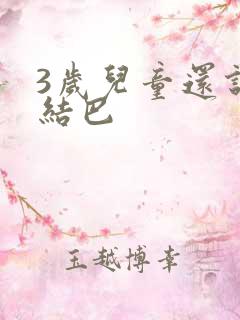 3歲兒童還
結巴
玉越博幸